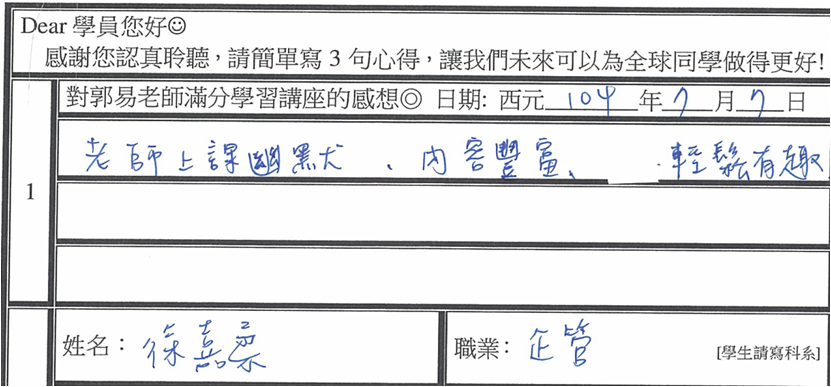 Dear 學員您好☺
感謝您認真聆聽，請簡單寫 3 句心得，讓我們未來可以為全球同學做得更好!
1
對郭易老師滿分學習講座的感想◎ 日期: 西元 104 年 7 月 7 日
老師上課幽默、內容豐富、輕鬆有趣
姓名： 徐嘉柔 職業： 企管 [學生請寫科系]